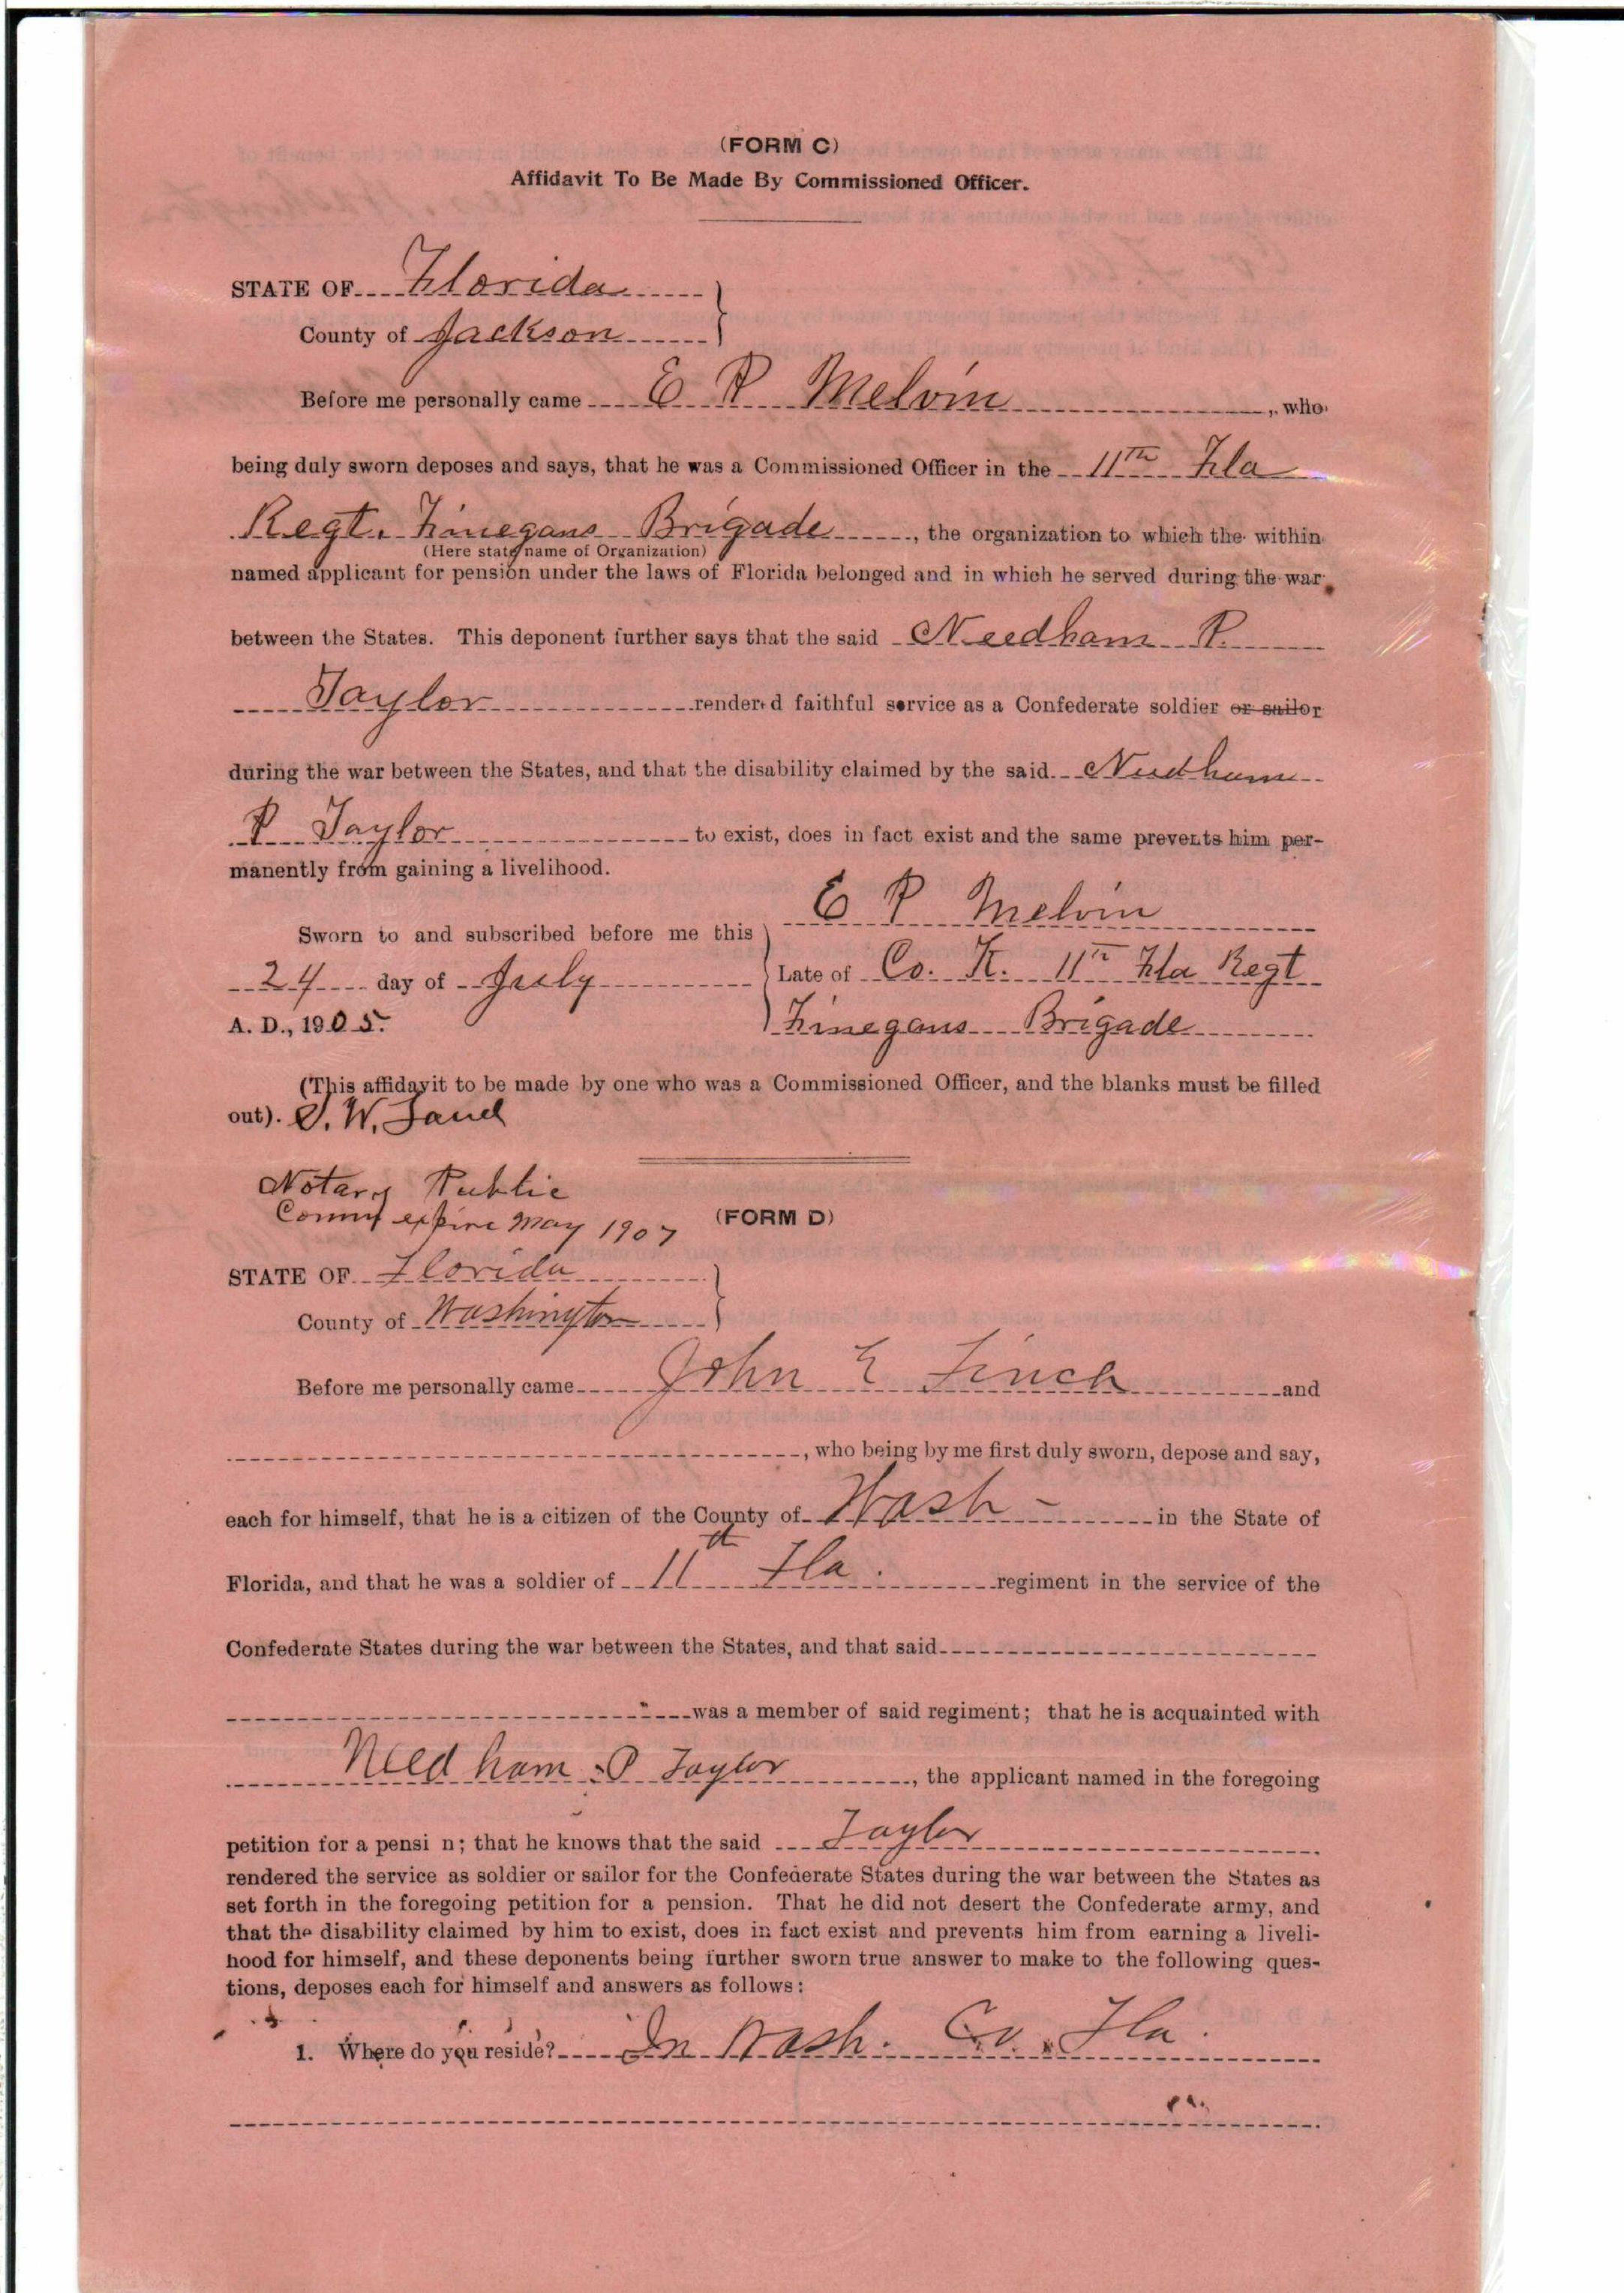 (FORM C)
Affidavit To Be Made By Commissioned Officer.
STATE OF Florida
County of Jackson
Before me personally came E P Melvin, who
being duly sworn deposes and says, that he was a Commissioned Officer in the 11th Fla
Regt. Finegans Brigade, the organization to which the within
(Here state name of Organization)
named applicant for pension under the laws of Florida belonged and in which he served during the war
between the States. This deponent further says that the said Needham P.
Taylor rendered faithful service as a Confederate soldier or sailor
during the war between the States, and that the disability claimed by the said Needham
P Taylor to exist, does in fact exist and the same prevents him per-
manently from gaining a livelihood.
E P Melvin
Sworn to and subscribed before me this
24 day of July
Late of Co. K. 11th Fla Regt
A. D., 1905.
Finegans Brigade
(This affidavit to be made by one who was a Commissioned Officer, and the blanks must be filled
out). W.
Notary Public
Comm expire May 1907
(FORM D)
STATE OF Florida
County of Washington
Before me personally came John E Finch and
, who being by me first duly sworn, depose and say,
each for himself, that he is a citizen of the County of Wash - in the State of
Florida, and that he was a soldier of 11th Fla. regiment in the service of the
Confederate States during the war between the States, and that said
was a member of said regiment; that he is acquainted with
Needham P Taylor, the applicant named in the foregoing
petition for a pensi n; that he knows that the said Taylor
rendered the service as soldier or sailor for the Confederate States during the war between the States as
set forth in the foregoing petition for a pension. That he did not desert the Confederate army, and
that the disability claimed by him to exist, does in fact exist and prevents him from earning a liveli-
hood for himself, and these deponents being further sworn true answer to make to the following ques-
tions, deposes each for himself and answers as follows:
1. Where do you reside? In Wash. Co. Fla.